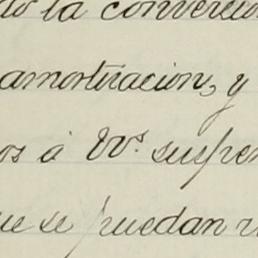 do la conversion
amortizacion, y
os á VVs. suspen
ue se puedan